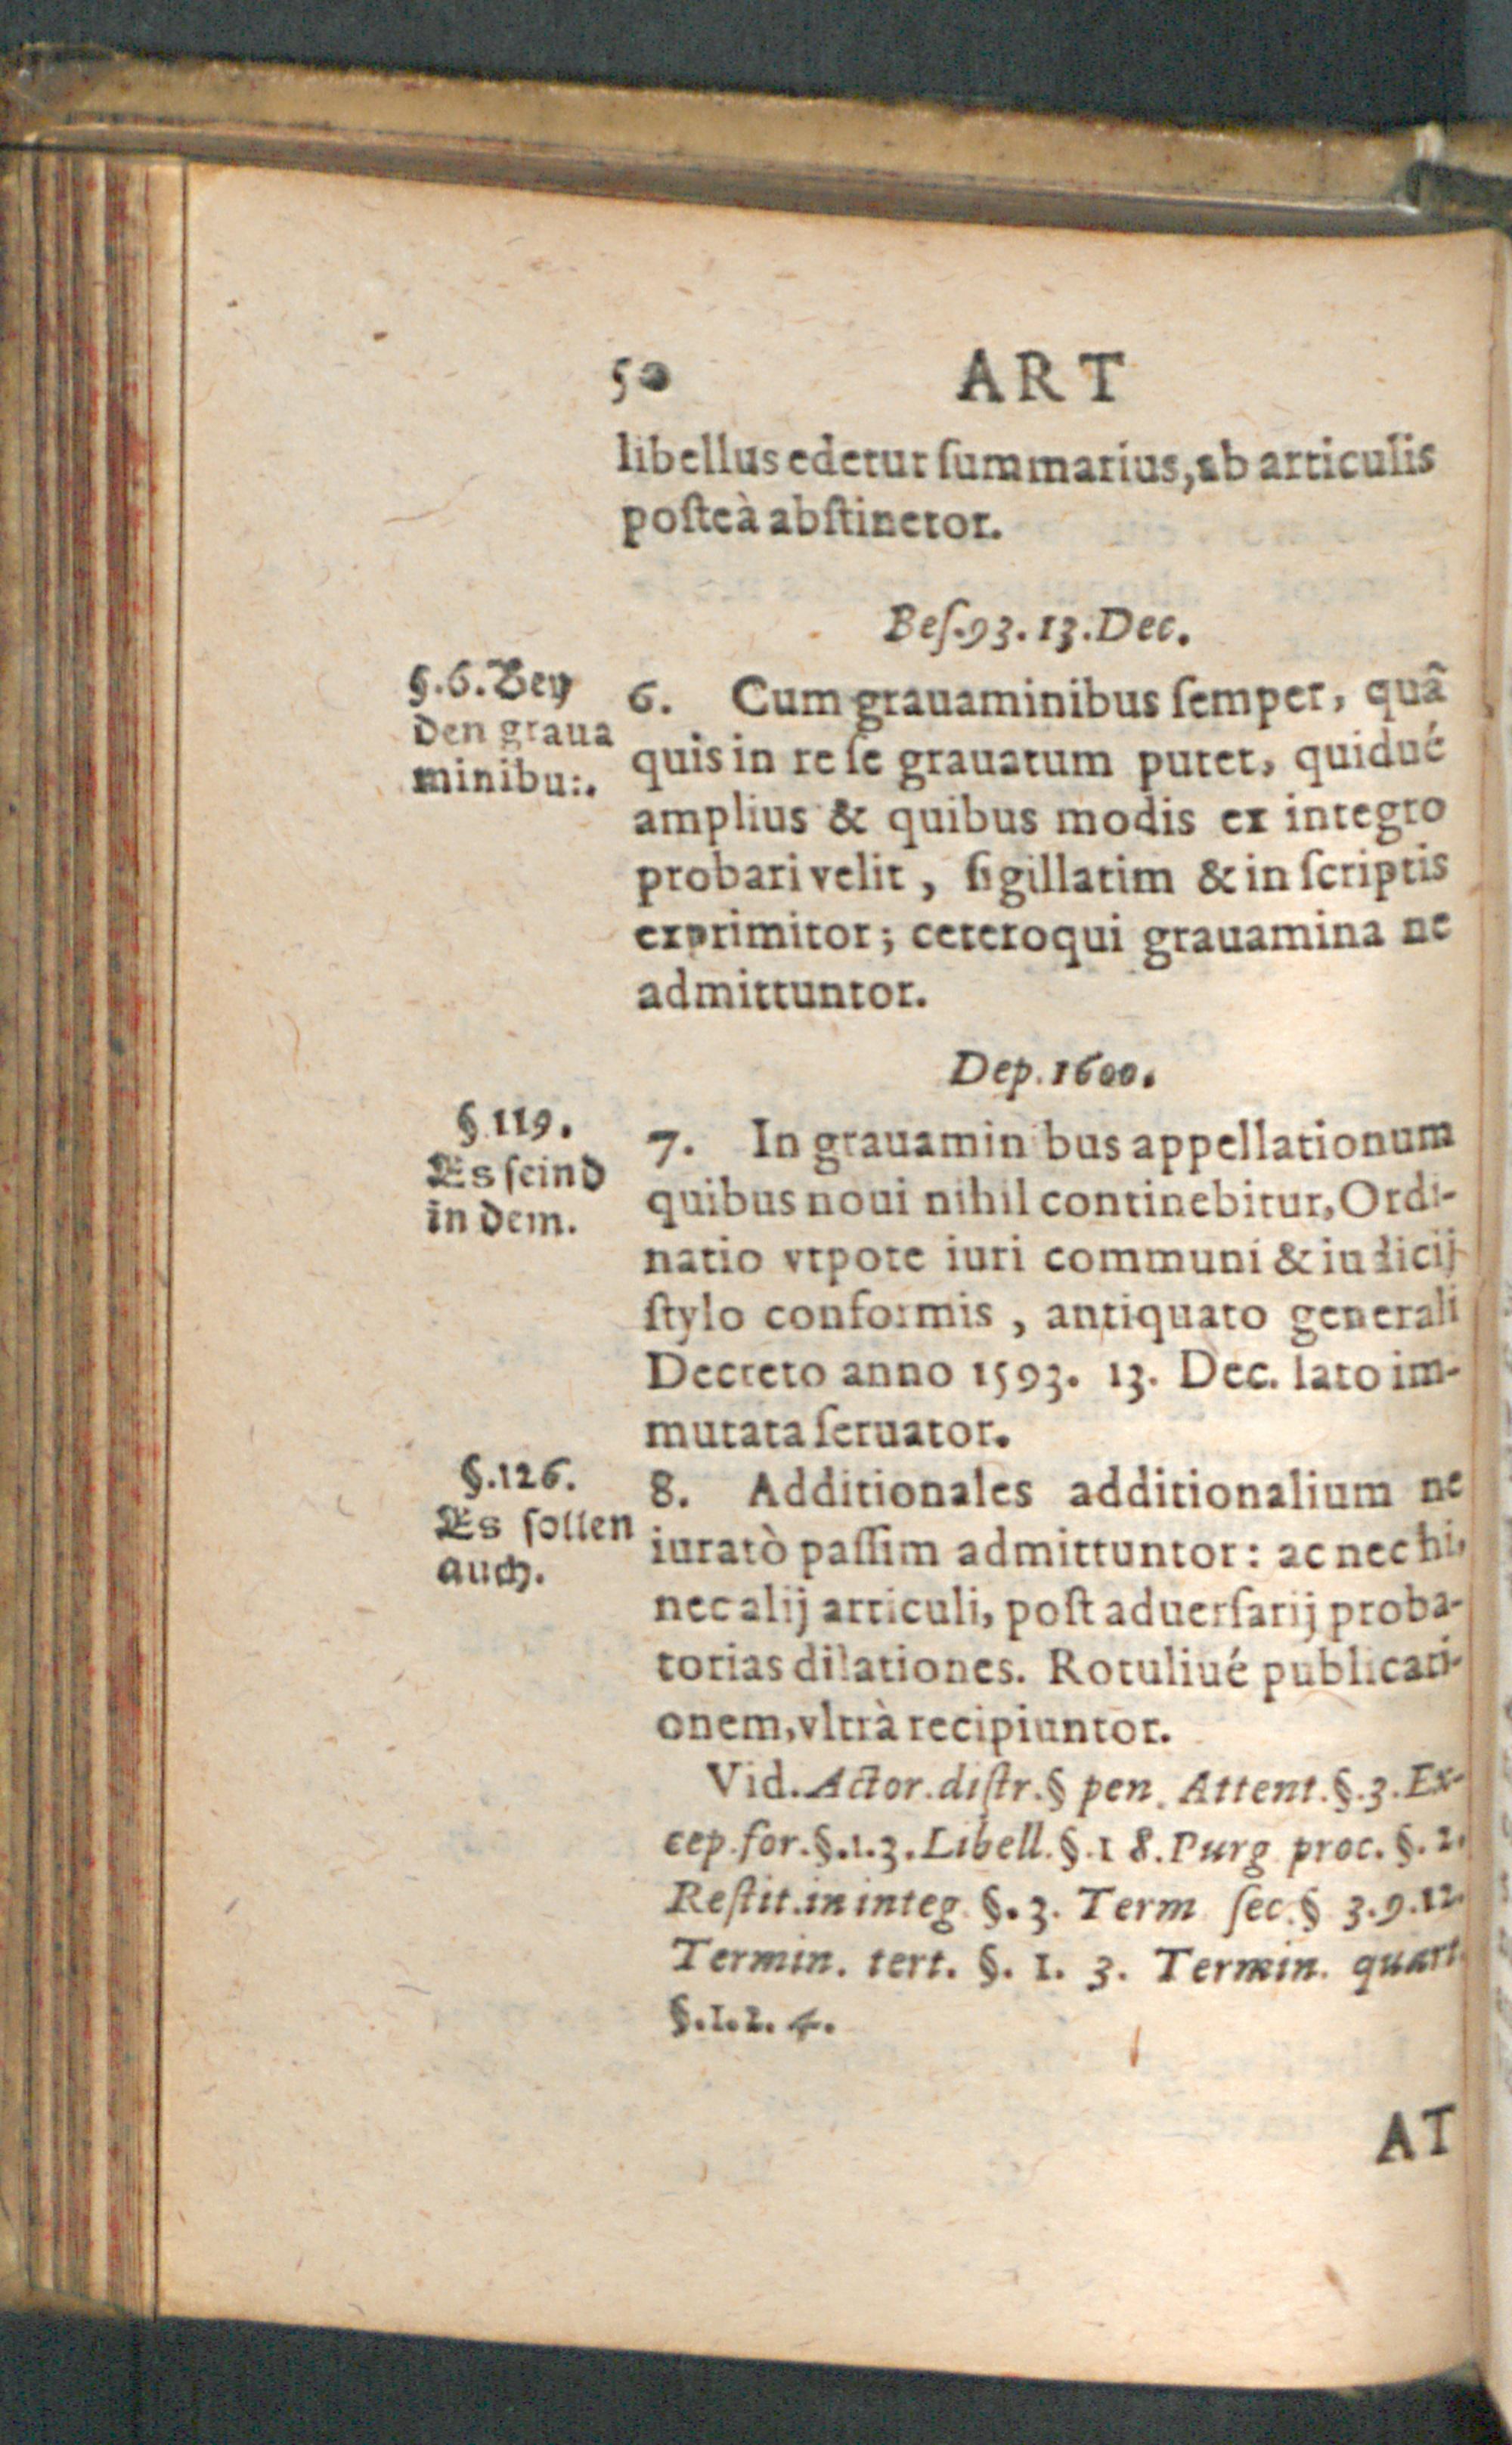 50 ART
libellus edetur ſummarius, ab articulis
poſteà abſtinetor.
Beſ.93.13.Dec.
§.6. Bey
den graua
minibu:.
6. Cum grauaminibus ſemper, quâ
quis in re ſe grauatum putet, quidué
amplius & quibus modis ex integro
probari velit, ſigillatim & in ſcriptis
exprimitor; ceteroqui grauamina ne
admittuntor.
Dep. 1600.
§ 119.
Es ſeind
in dem.
7. In grauamin bus appellationum
quibus noui nihil continebitur, Ordi-
natio vtpote iuri communi & iudicij
ſtylo conformis, antiquato generali
Decreto anno 1593. 13. Dec. lato im-
mutata ſeruator.
§.126.
Es ſollen
auch.
8. Additionales additionalium ne
iuratò paſſim admittuntor: ac nec hi,
nec alij articuli, poſt aduerſarij proba-
torias dilationes. Rotuliué publicati-
onem, vltrà recipiuntor.
Vid. Actor. diſtr. § pen. Attent. §.3. Ex-
cep. for. §.1.3. Libell. §.18. Purg proc. §.2.
Reſtit. in integ. §.3. Term ſec. § 3.9.12.
Termin. tert. §. 1. 3. Termin. quart.
§.1.2.4.
AT